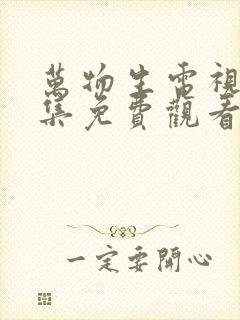 萬物生電視
集免費觀看
一定要開心